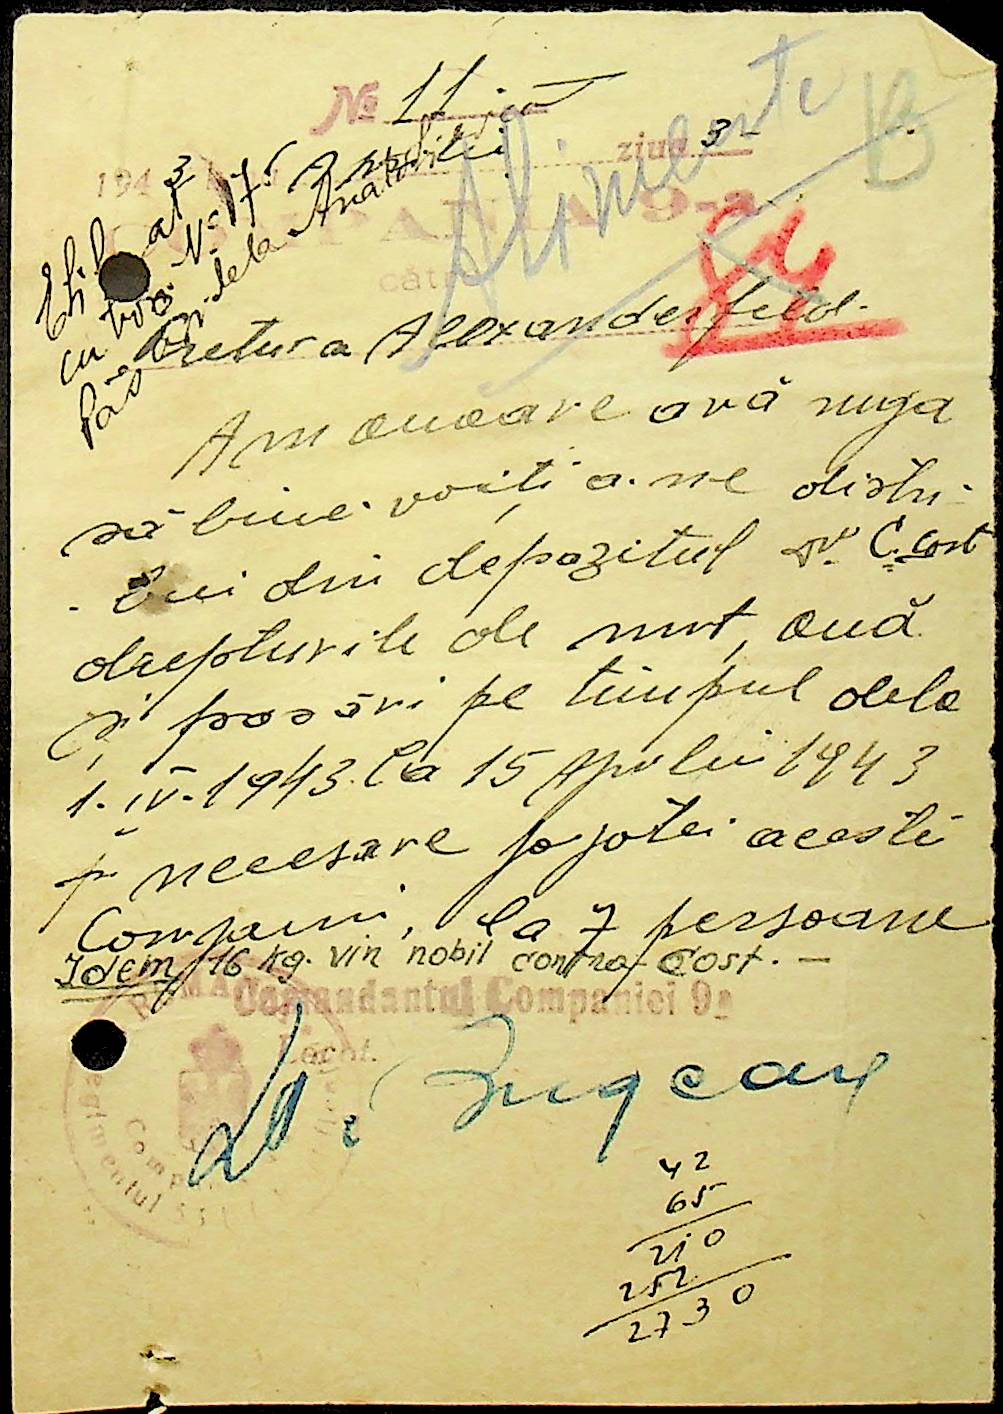 No 11
1943 luna Aprilie ziua 3
COMPANIA 9-a
către
Alimente
B
Pretura Alexanderfeld.
Eliberat
cu bon No 175
de la Anatol
Am onoare avă ruga
să bine-voiți a-ne distri-
-bui din depozitul C. Cost
drepturile de unt, ouă
și pasări pe timpul dela
1-IV-1943 la 15 Aprilie 1943
necesare popotei acestei
Companii, la 7 persoane
Idem 16 kg. vin nobil contra Cost. —
Comandantul Companiei 9a
Locot.
ROMANIA
Regimentul
Compania
42
65
210
252
2730